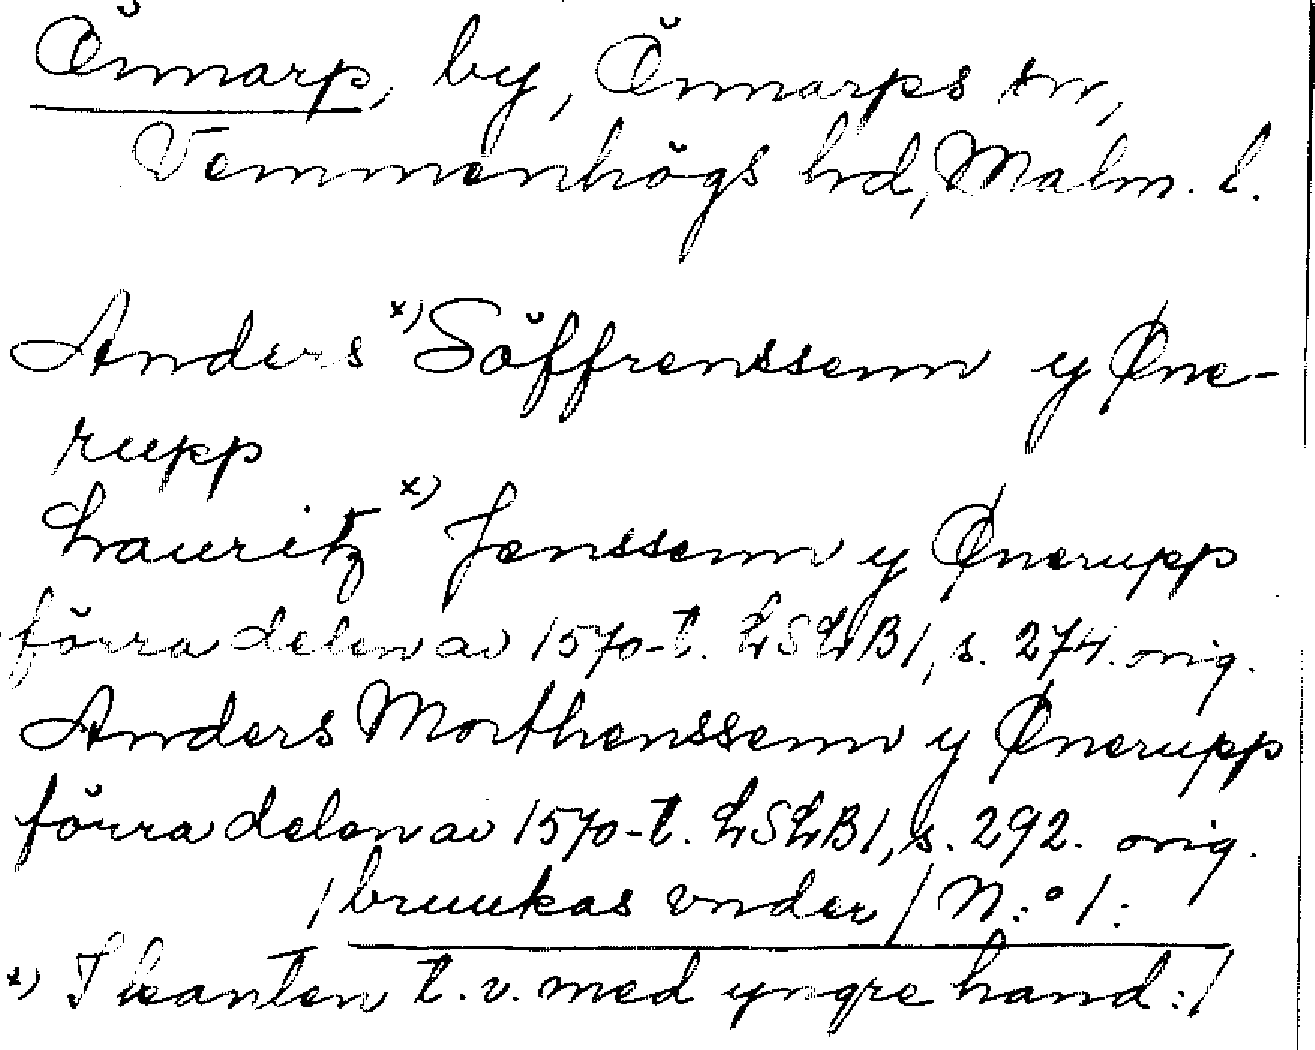 Önnarp, by, Önnarps sn,
Vemmenhögs hd, Malm. l.
Anders x) Söffrenssenn y Øne-
rupp
Lauritz x) Jenssenn y Ønerupp
förra delen av 1570-t. LSLB1, s. 274. orig.
Anders Morthenssenn y Ønerupp
förra delen av 1570-t. LSLB1, s. 292. orig.
/bruukas vnder / N:o 1:
x) I kanten t.v. med yngre hand:/